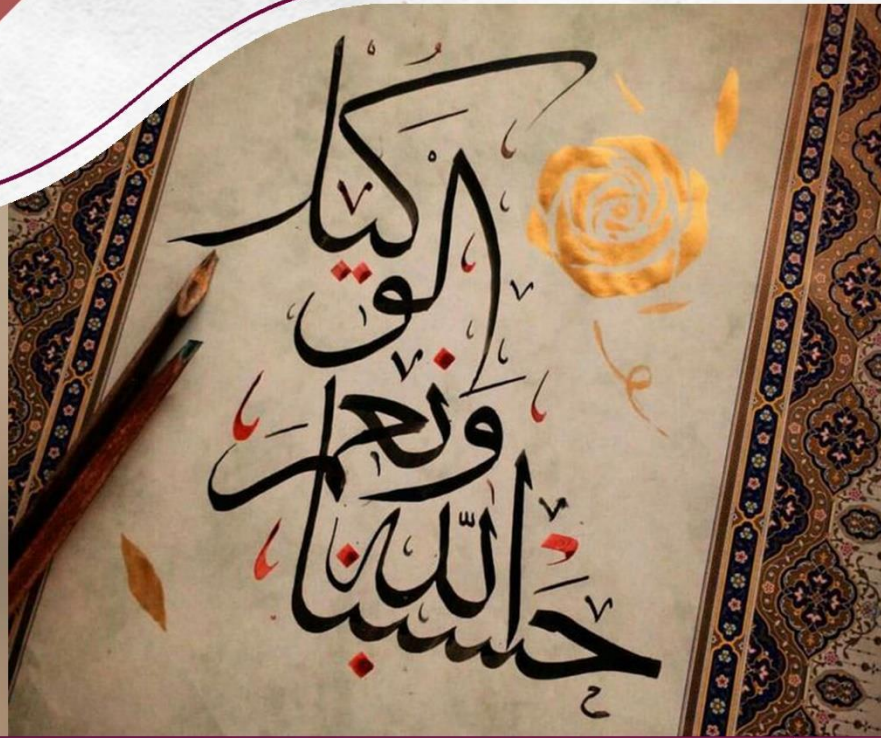 حسبنا الله
ونعم
الوكيل